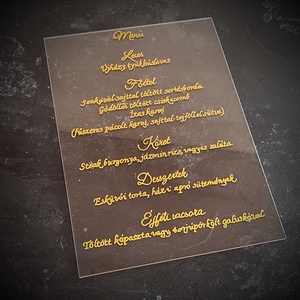 Menü
Leves
Újházy tyúkhúsleves
Főétel
Sonkával, sajttal töltött sertésborda
Gödöllői töltött csirkecomb
Ízes karaj
(Fűszeres pácolt karaj, sajttal tejföllel sütve)
Köret
Steak burgonya, jázmin rizs, vegyes saláta
Desszertek
Esküvői torta, házi apró sütemények
Éjféli vacsora
Töltött káposzta vagy borjúpörkölt galuskával